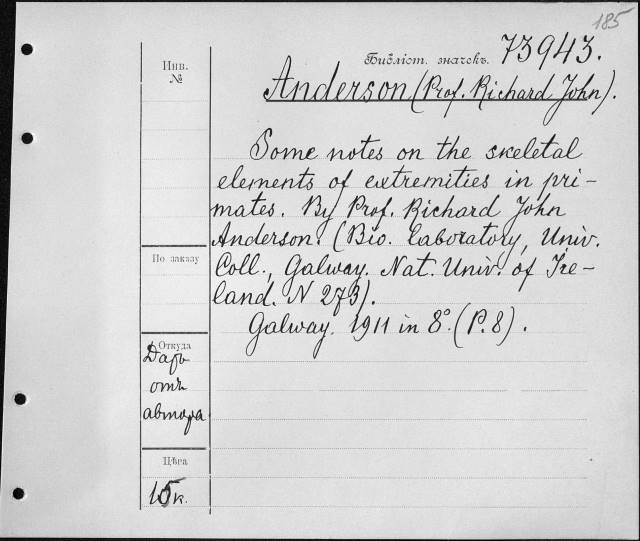 185
Инв.
№
Библіот. значекъ. 73943.
Anderson (Prof. Richard John).
Some notes on the skeletal
elements of extremities in pri-
mates. By Prof. Richard John
Anderson. (Bio. laboratory, Univ.
Coll., Galway. Nat. Univ. of Ire-
land. N 273).
Galway. 1911 in 8°. (P. 8).
По заказу
Откуда
Даръ
отъ
автора
Цѣна
15 к.